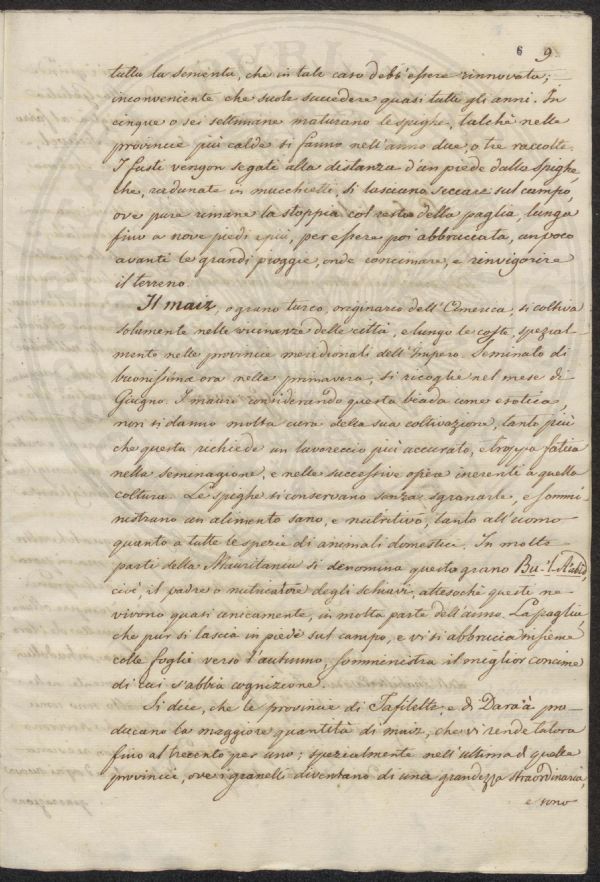 6 9
tutta la sementa, che in tale caso debb'essere rinnovata;
inconveniente che suole succedere quasi tutti gli anni. In
cinque o sei settimane maturano le spighe, talchè nelle
provincie più calde si fanno nell'anno due, o tre raccolte.
I fusti vengon segati alla distanza d'un piede dalle spighe
che, radunate in mucchietti, si lasciano seccare sul campo,
ove pure rimane la stoppia col resto della paglia, lunga
fino a nove piedi e più, per essere poi abbruciata, un poco
avanti le grandi pioggie, onde concimare, e rinvigorire
il terreno.
Il maiz, o grano turco, originario dell'America, si coltiva
solamente nelle vicinanze delle città, e lungo le coste, spezial-
mente nelle provincie meridionali dell'Impero. Seminato di
buonissima ora nella primavera, si ricoglie nel mese di
Giugno. I mauri considerando questa biada come esotica,
non si danno molta cura della sua coltivazione, tanto più
che questa richiede un lavoreccio più accurato, e troppa fatica
nella seminagione, e nelle successive opere inerenti a quella
coltura. Le spighe si conservano senza sgranarle, e sommi-
nistrano un alimento sano, e nutritivo, tanto all'uomo
quanto a tutte le spezie di animali domestici. In molta
parte della Mauritania si denomina questo grano Bu-'l-A'abid,
cioè, il padre o nutricatore degli schiavi, attesochè questi ne
vivono quasi unicamente, in molta parte dell'anno. La paglia,
che pur si lascia in piede sul campo, e vi si abbrucia insieme
colle foglie verso l'autunno, somministra il miglior concime
di cui s'abbia cognizione.
Si dice, che le provincie di Tafilette e di Daraà pro-
ducano la maggiore quantità di maiz, che vi rende talora
fino al trecento per uno; spezialmente nell'ultima di quelle
provincie, ove i granelli diventano di una grandezza straordinaria,
e sono